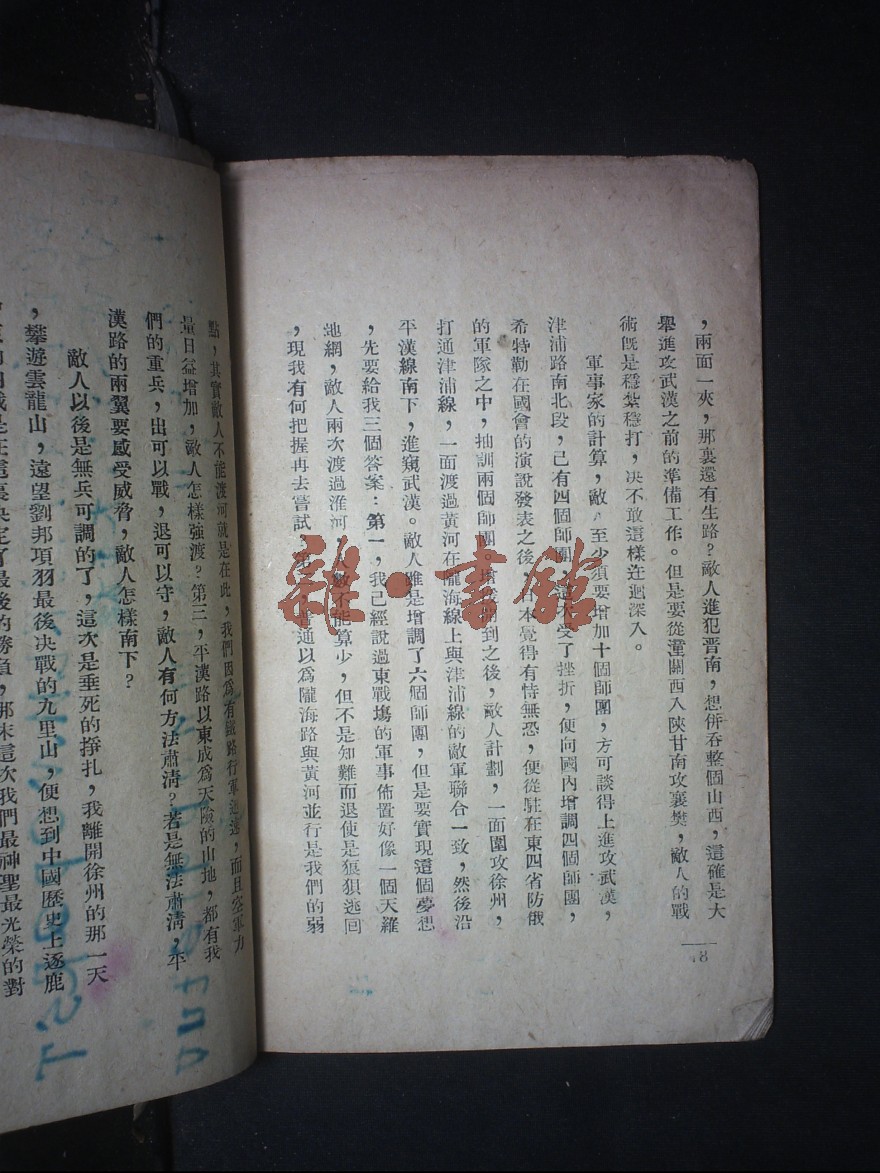 ，兩面一夾，那裏還有生路？敵人進犯晋南，想併吞整個山西，這確是大
舉進攻武漢之前的準備工作。但是要從潼關西入陝甘南攻襄樊，敵人的戰
術旣是穩紮穩打，决不敢這樣迂迴深入。
軍事家的計算，敵 至少須要增加十個師團，方可談得上進攻武漢，
津浦路南北段，已有四個師團，這 受了挫折，便向國內增調四個師團，
希特勒在國會的演說發表之後， 本覺得有恃無恐，便從駐在東四省防俄
的軍隊之中，抽調兩個師團， 到之後，敵人計劃，一面圍攻徐州，
打通津浦線，一面渡過黃河在隴海線上與津浦線的敵軍聯合一致，然後沿
平漢線南下，進窺武漢。敵人雖是增調了六個師團，但是要實現這個夢想
，先要給我三個答案：第一，我已經說過東戰塲的軍事佈置好像一個天羅
地網，敵人兩次渡過淮河， 數不能算少，但不是知難而退便是狼狽逃回
，現我有何把握再去嘗試， ，普通以爲隴海路與黃河並行是我們的弱
18
點，其實敵人不能渡河就是在此，我們因爲有鐵路行軍迅速，而且空軍力
量日益增加，敵人怎樣強渡？第三，平漢路以東成爲天險的山地，都有我
們的重兵，出可以戰，退可以守，敵人有何方法肅清？若是無法肅清，平
漢路的兩翼要感受威脅，敵人怎樣南下？
敵人以後是無兵可調的了，這次是垂死的掙扎，我離開徐州的那一天
，攀遊雲龍山，遠望劉邦項羽最後决戰的九里山，便想到中國歷史上逐鹿
是在這裏决定了最後的勝負，那末這次我們最神聖最光榮的對
雜·書館